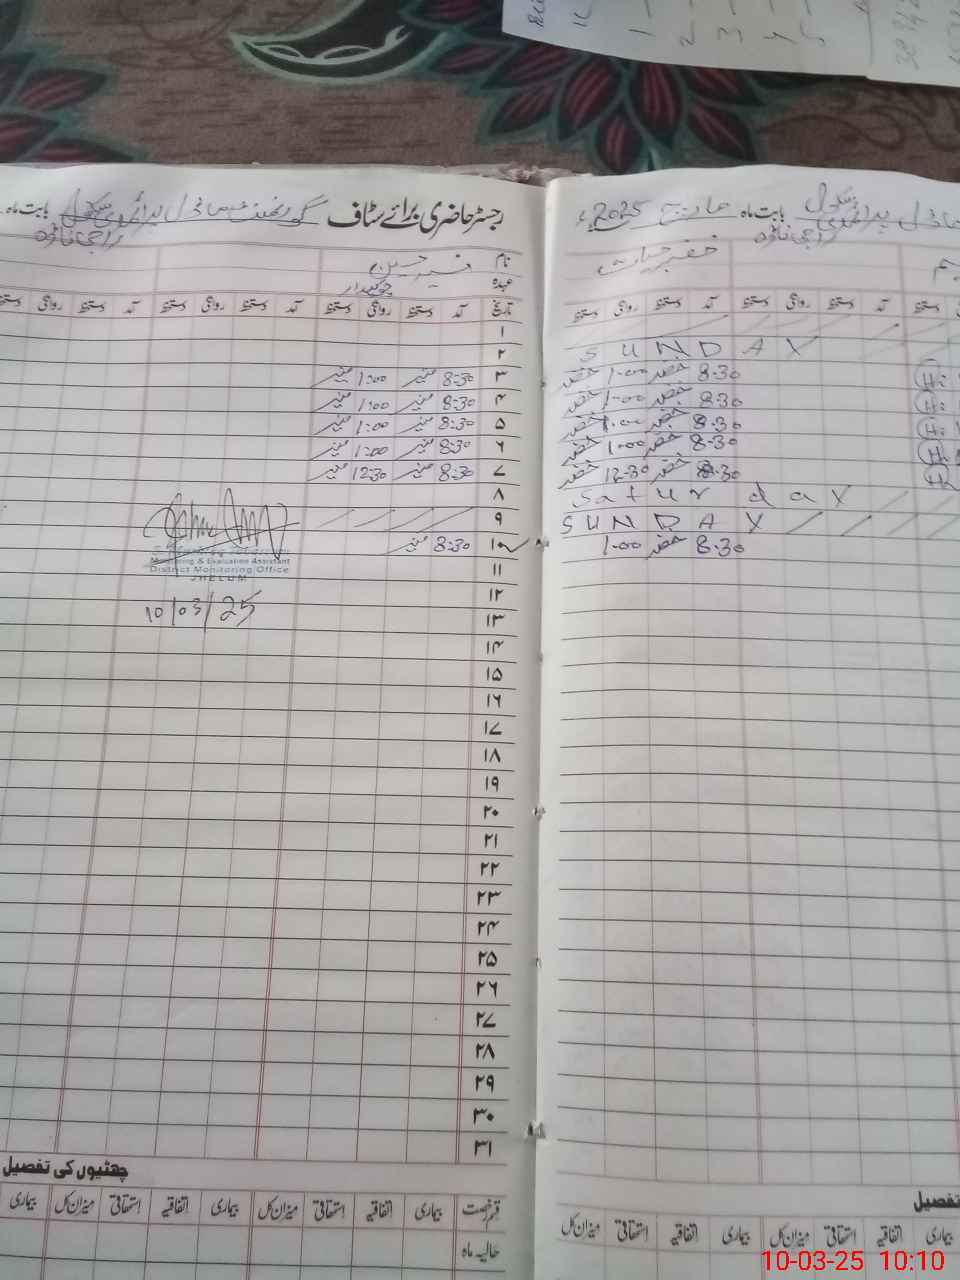 رجسٹر حاضری برائے سٹاف گورنمنٹ ماڈل پرائمری سکول بابت ماہ
نام
عہدہ چوکیدار
تاریخ آمد دستخط روانگی دستخط آمد دستخط روانگی دستخط آمد دستخط روانگی
۱
۲
۳ 8:30 منیر 1:00 منیر
۴ 8:30 منیر 1:00 منیر
۵ 8:30 منیر 1:00 منیر
۶ 8:30 منیر 1:00 منیر
۷ 8:30 منیر 12:30 منیر
۸
۹
۱۰ 8:30 منیر
۱۱
۱۲
۱۳
۱۴
۱۵
۱۶
۱۷
۱۸
۱۹
۲۰
۲۱
۲۲
۲۳
۲۴
۲۵
۲۶
۲۷
۲۸
۲۹
۳۰
۳۱
Monitoring & Evaluation Assistant
District Monitoring Office
JHELUM
10/03/25
چھٹیوں کی تفصیل
قسم رخصت بیماری اتفاقیہ استحقاقی میزان کل بیماری اتفاقیہ استحقاقی میزان کل بیماری
حالیہ ماہ
ماڈل پرائمری سکول بابت ماہ مارچ 2025ء
خضر حیات
آمد دستخط روانگی دستخط آمد دستخط روانگی دستخط
SUNDAY
8:30 خضر 1:00 خضر
8:30 خضر 1:00 خضر
8:30 خضر 1:00 خضر
8:30 خضر 1:00 خضر
8:30 خضر 12:30 خضر
Saturday
SUNDAY
8:30 خضر 1:00
تفصیل
بیماری اتفاقیہ استحقاقی میزان کل بیماری اتفاقیہ استحقاقی میزان کل
10-03-25 10:10